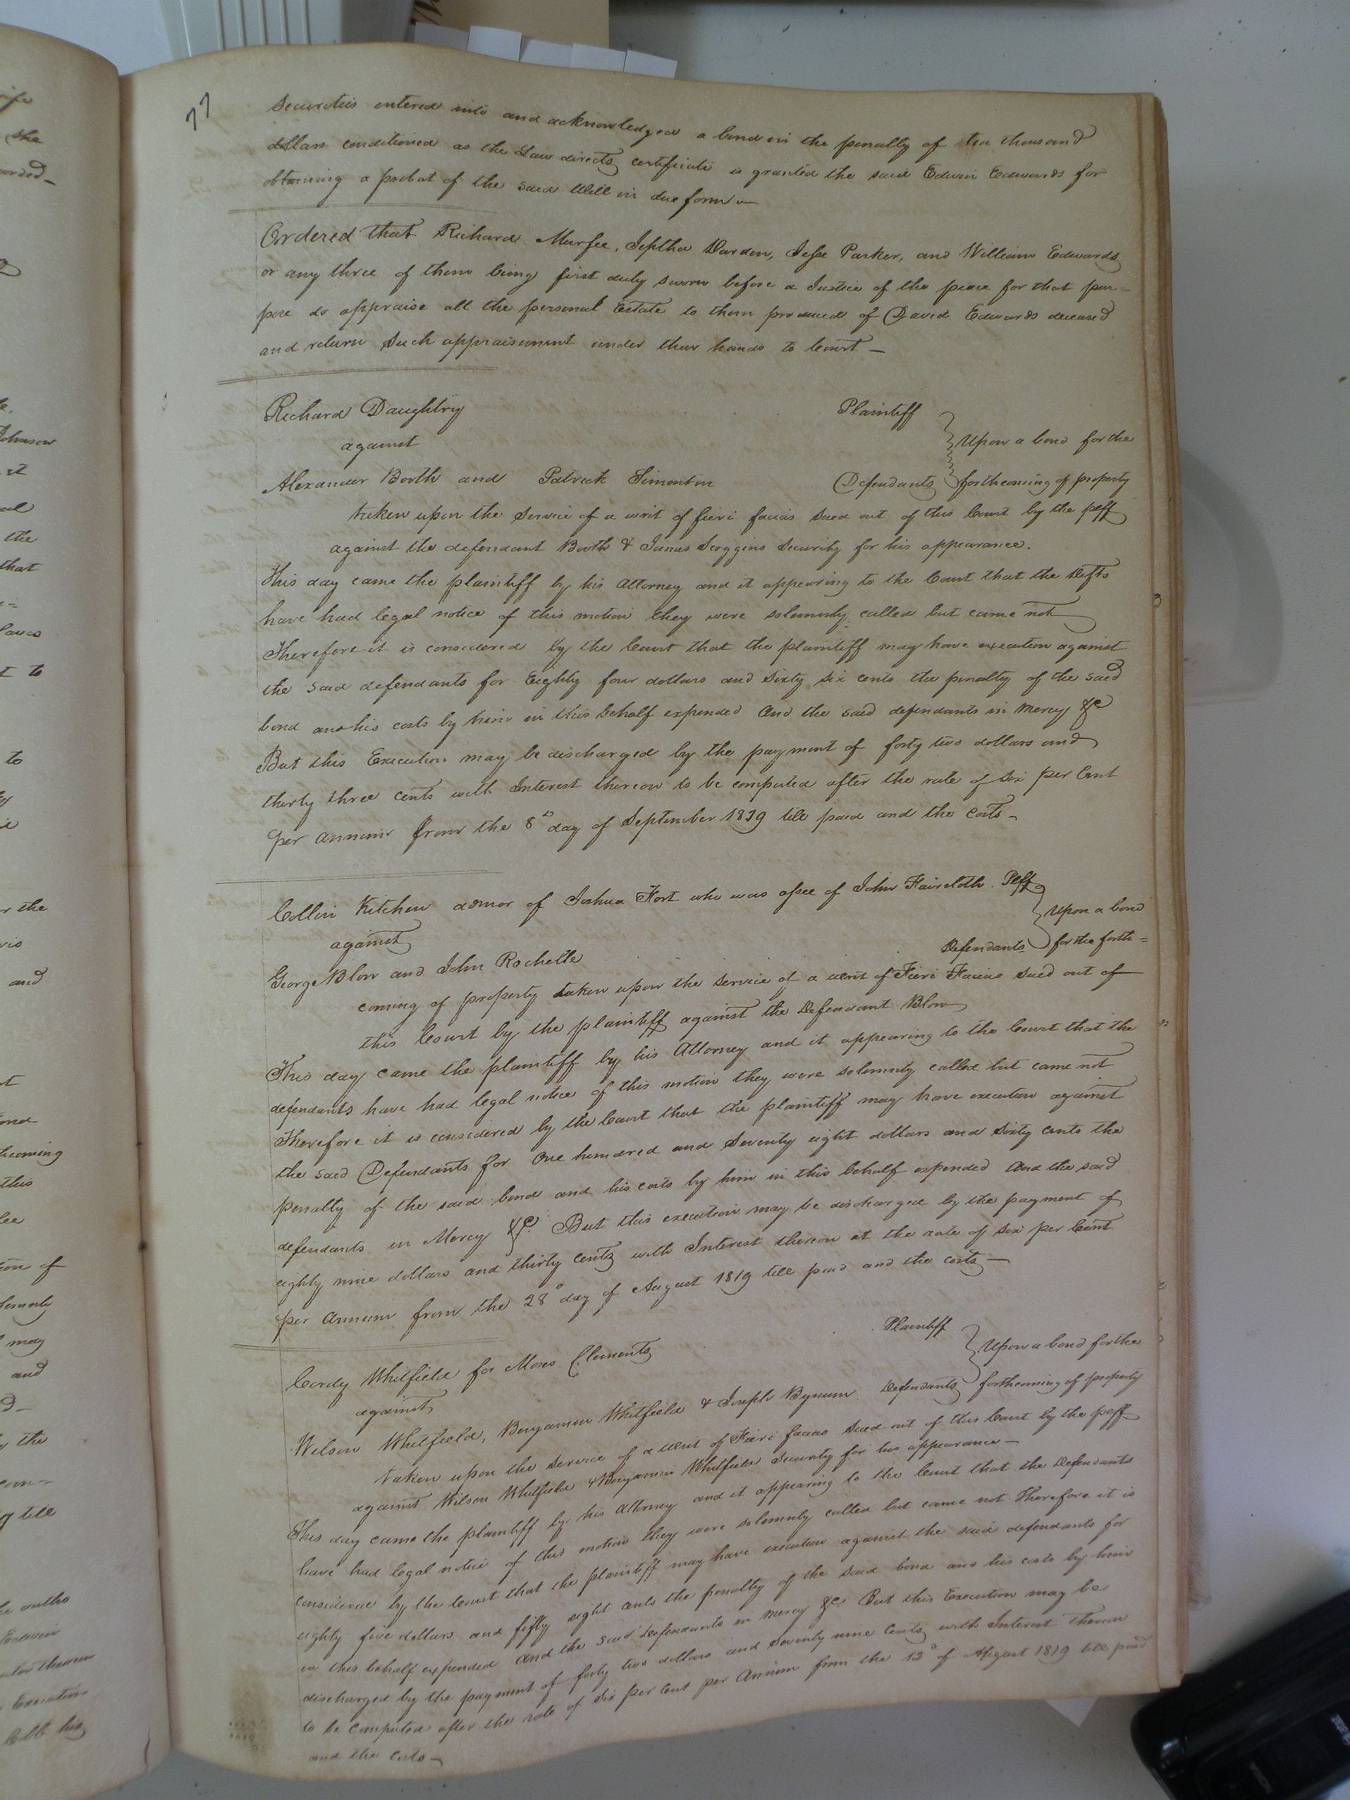 77
Securities entered into and acknowledged a bond in the penalty of ten thousand
dollars conditioned as the Law directs certificate is granted the said Edwin Edwards for
obtaining a probat of the said Will in due form
Ordered that Richard Murfee, Jeptha Darden, Jesse Parker, and William Edwards
or any three of them being first duly sworn before a Justice of the peace for that pur=
pose do appraise all the personal Estate to them produced of David Edwards deceased
and return such appraisement under their hands to Court —
Richard Daughtry Plaintiff
against Upon a bond for the
Alexander Booth and Patrick Simonton Defendants forthcoming of property
taken upon the Service of a writ of fieri facias sued out of this Court by the plff
against the defendant Booth & James Scoggins Security for his appearance.
This day came the plaintiff by his Attorney and it appearing to the Court that the Defts
have had legal notice of this motion they were solemnly called but came not
Therefore it is considered by the Court that the plaintiff may have execution against
the said defendants for Eighty four dollars and Sixty six cents the penalty of the said
bond and his costs by him in this behalf expended And the said defendants in mercy &c
But this Execution may be discharged by the payment of forty two dollars and
thirty three cents with Interest thereon to be computed after the rate of six per Cent
per annum from the 8th day of September 1819 till paid and the costs —
Collin Kitchen admor of Joshua Fort who was assee of John Faircloth Plff
against Upon a bond
George Blow and John Rochelle Defendants for the forth=
coming of property taken upon the service of a writ of Fieri Facias sued out of
this Court by the plaintiff against the Defendant Blow
This day came the plaintiff by his Attorney and it appearing to the Court that the
defendants have had legal notice of this motion they were solemnly called but came not
Therefore it is considered by the Court that the plaintiff may have execution against
the said Defendants for One hundred and Seventy eight dollars and Sixty cents the
penalty of the said bond and his costs by him in this behalf expended And the said
defendants in Mercy &c But this execution may be discharged by the payment of
eighty nine dollars and thirty cents with Interest thereon at the rate of six per Cent
per Annum from the 28th day of August 1819 till paid and the costs —
Cordy Whitfield for Moses Clements Plaintiff
against Upon a bond for the
Wilson Whitfield, Benjamin Whitfield & Joseph Bynum Defendants forthcoming of property
taken upon the service of a writ of Fieri facias sued out of this Court by the plff
against Wilson Whitfield & Benjamin Whitfield Security for his appearance —
This day came the plaintiff by his Attorney and it appearing to the Court that the Defendants
have had legal notice of this motion they were solemnly called but came not Therefore it is
considered by the Court that the plaintiff may have execution against the said defendants for
eighty five dollars and fifty eight cents the penalty of the said bond and his costs by him
in this behalf expended And the said defendants in mercy &c But this Execution may be
discharged by the payment of forty two dollars and seventy nine Cents with Interest thereon
to be computed after the rate of six per Cent per Annum from the 13th of August 1819 till paid
and the costs —